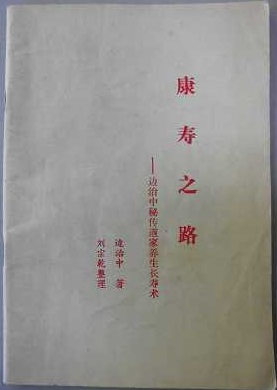 康寿之路
——边治中秘传道家养生长寿术
边治中 著
刘宗乾整理